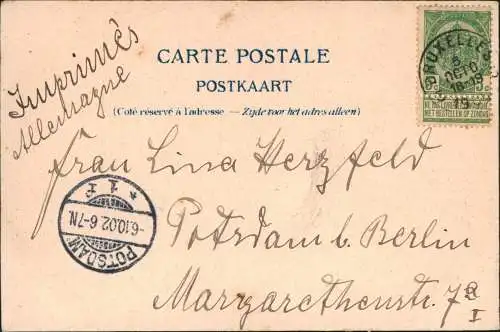 Imprimès
Allemagne
CARTE POSTALE
POSTKAART
(Coté réservé à l'adresse — Zijde voor het adres alleen)
BRUXELLES
5
OCTO
18-19
NE PAS LIVRER LE DIMANCHE
NIET BESTELLEN OP ZONDAG
Frau Lina Herzfeld
Potsdam b. Berlin
Margarethenstr. 7a
I
POTSDAM
-6.10.02.6-7N.
* 1 F